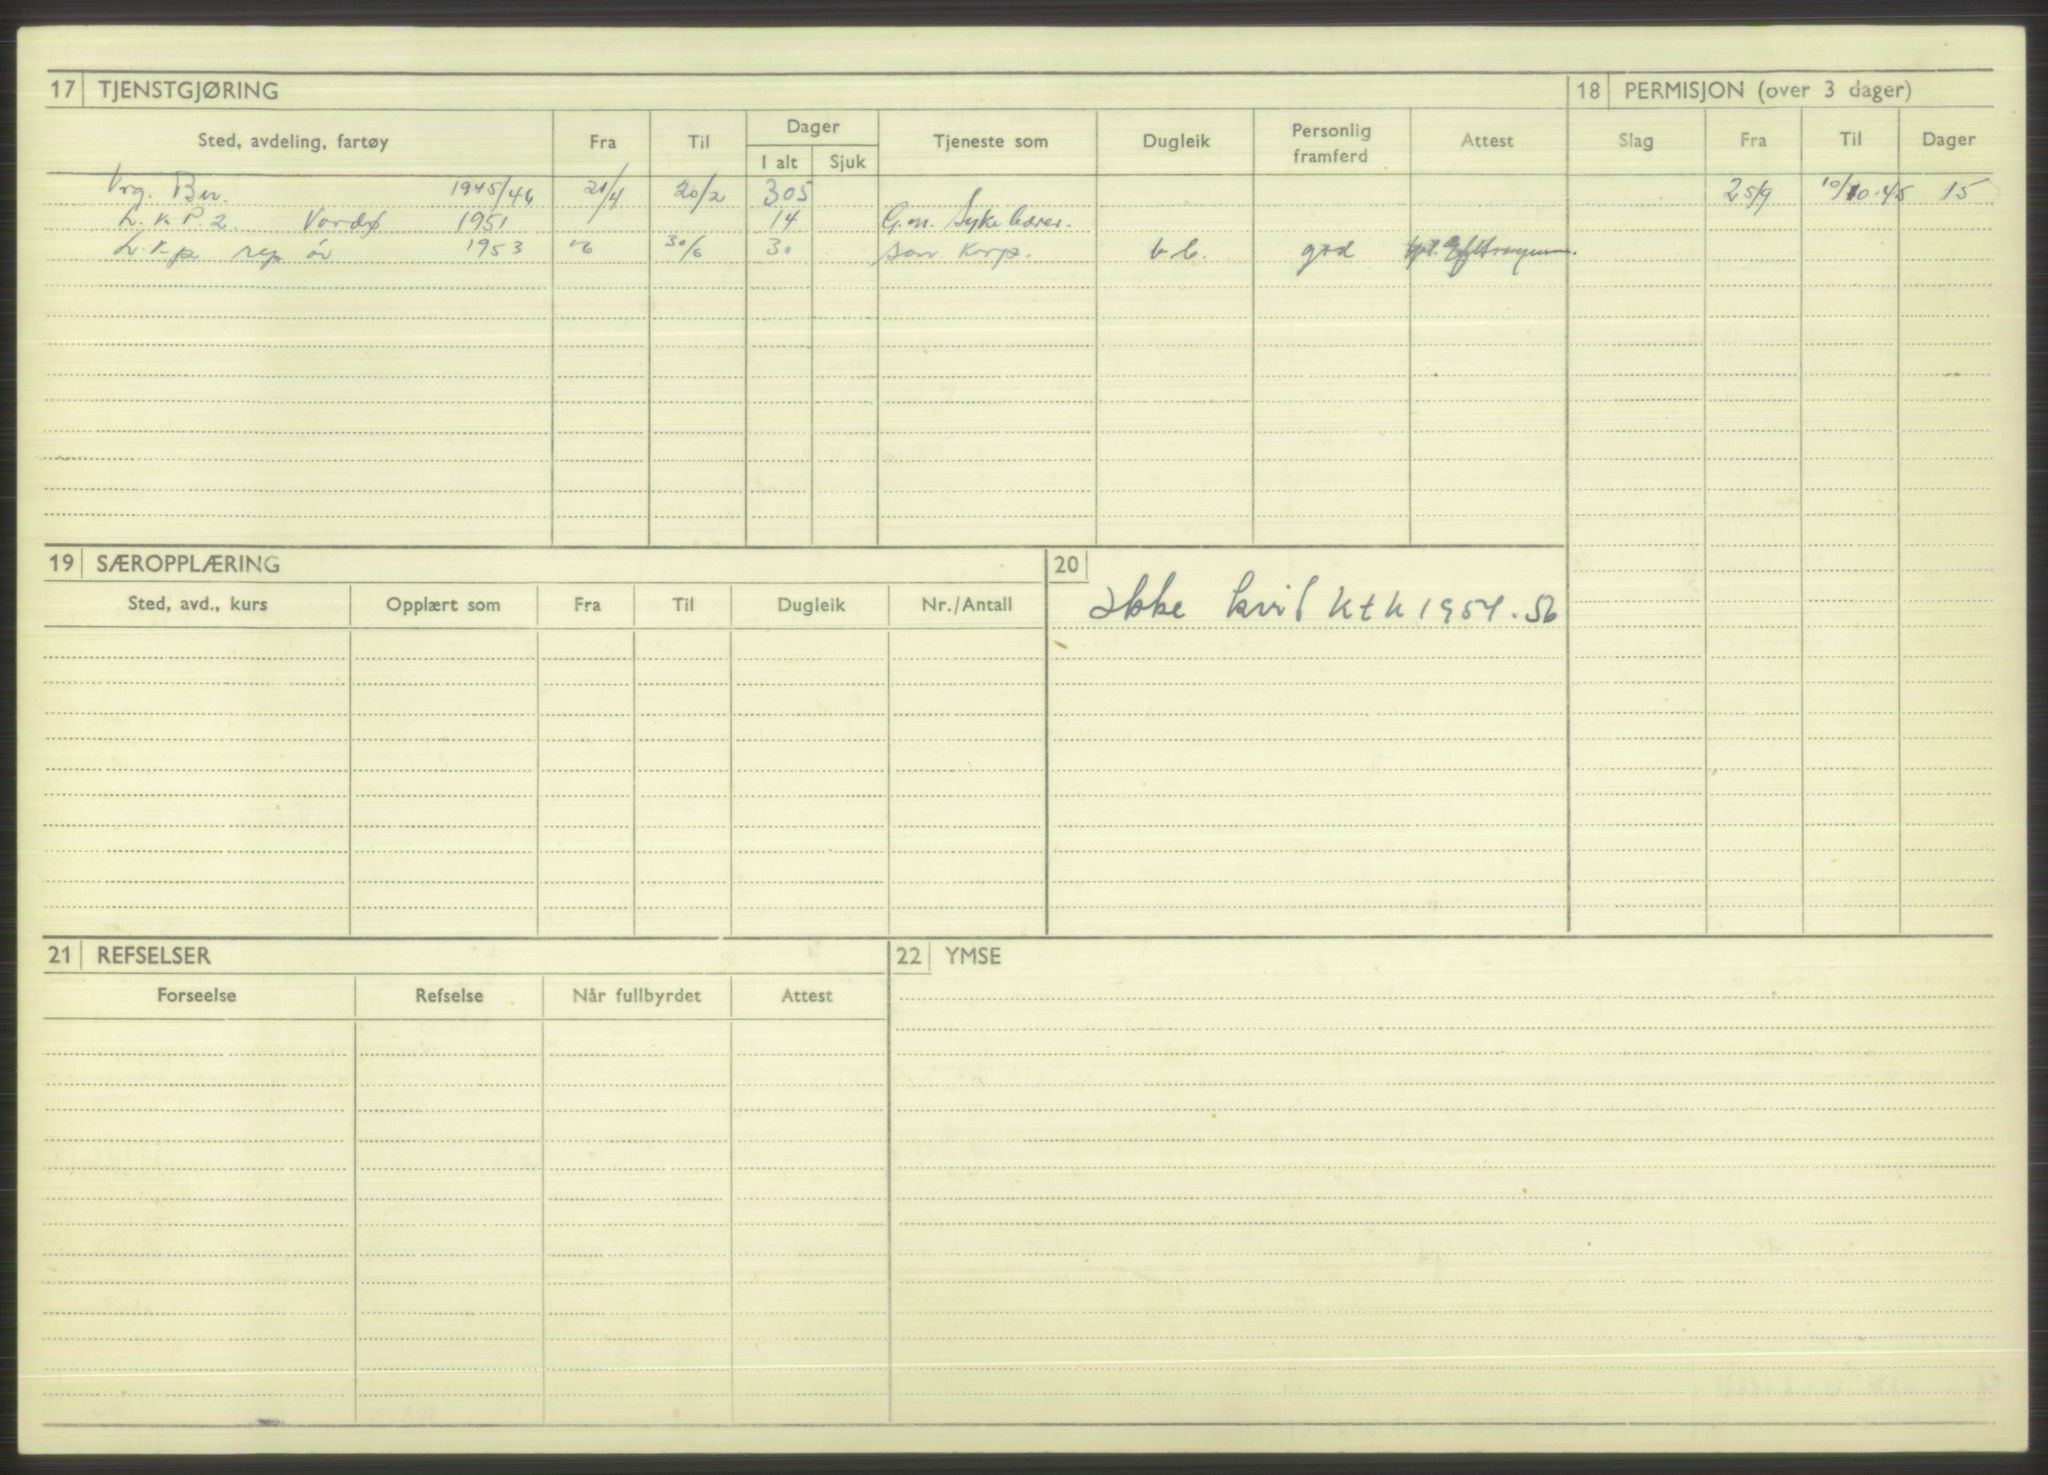 17 TJENSTGJØRING
Sted, avdeling, fartøy Fra Til Dager Tjeneste som Dugleik Personlig framferd Attest
I alt Sjuk
Vrg. Bn. 1945/46 21/4 20/2 305
L.K.P.2. Vardø 1951 14 G.m. Sykebærer.
L.K.p rep øv 1953 1/6 30/6 30 san Korp. b.b. god kpt.
18 PERMISJON (over 3 dager)
Slag Fra Til Dager
25/9 10/10-45 15
19 SÆROPPLÆRING
Sted, avd., kurs Opplært som Fra Til Dugleik Nr./Antall
20
Ikke kvit K t k 1954.56
21 REFSELSER
Forseelse Refselse Når fullbyrdet Attest
22 YMSE